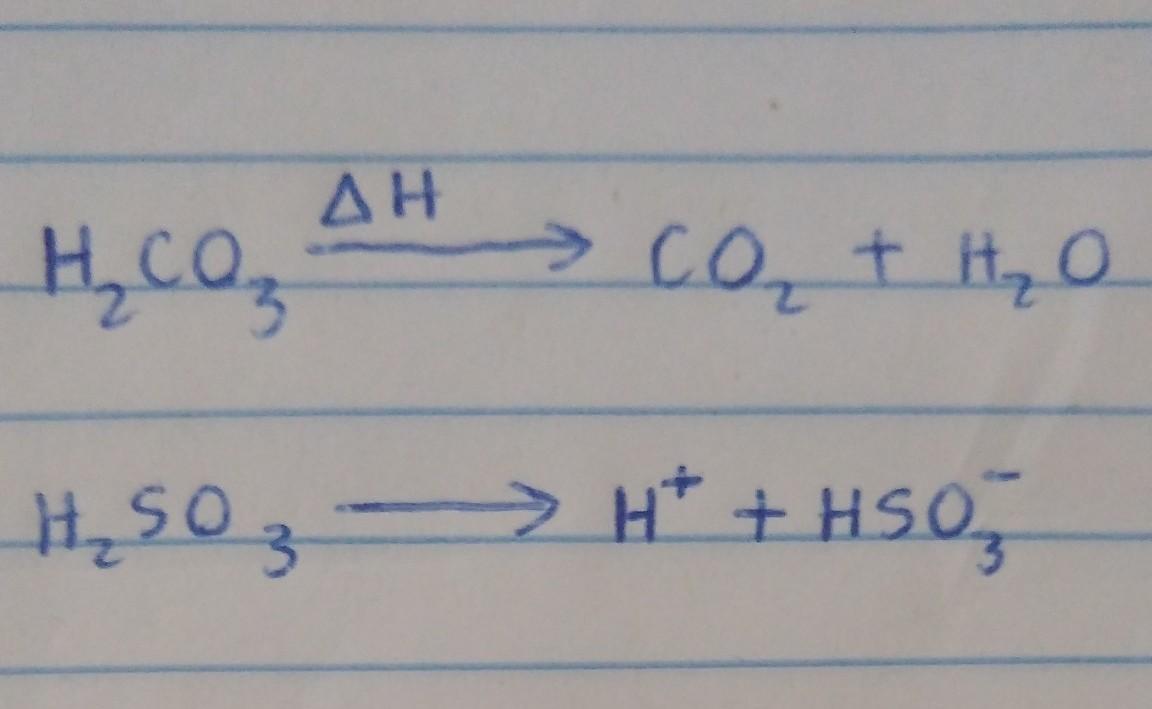 H₂CO₃ ΔH⟶ CO₂ + H₂O
H₂SO₃ ⟶ H⁺ + HSO₃⁻